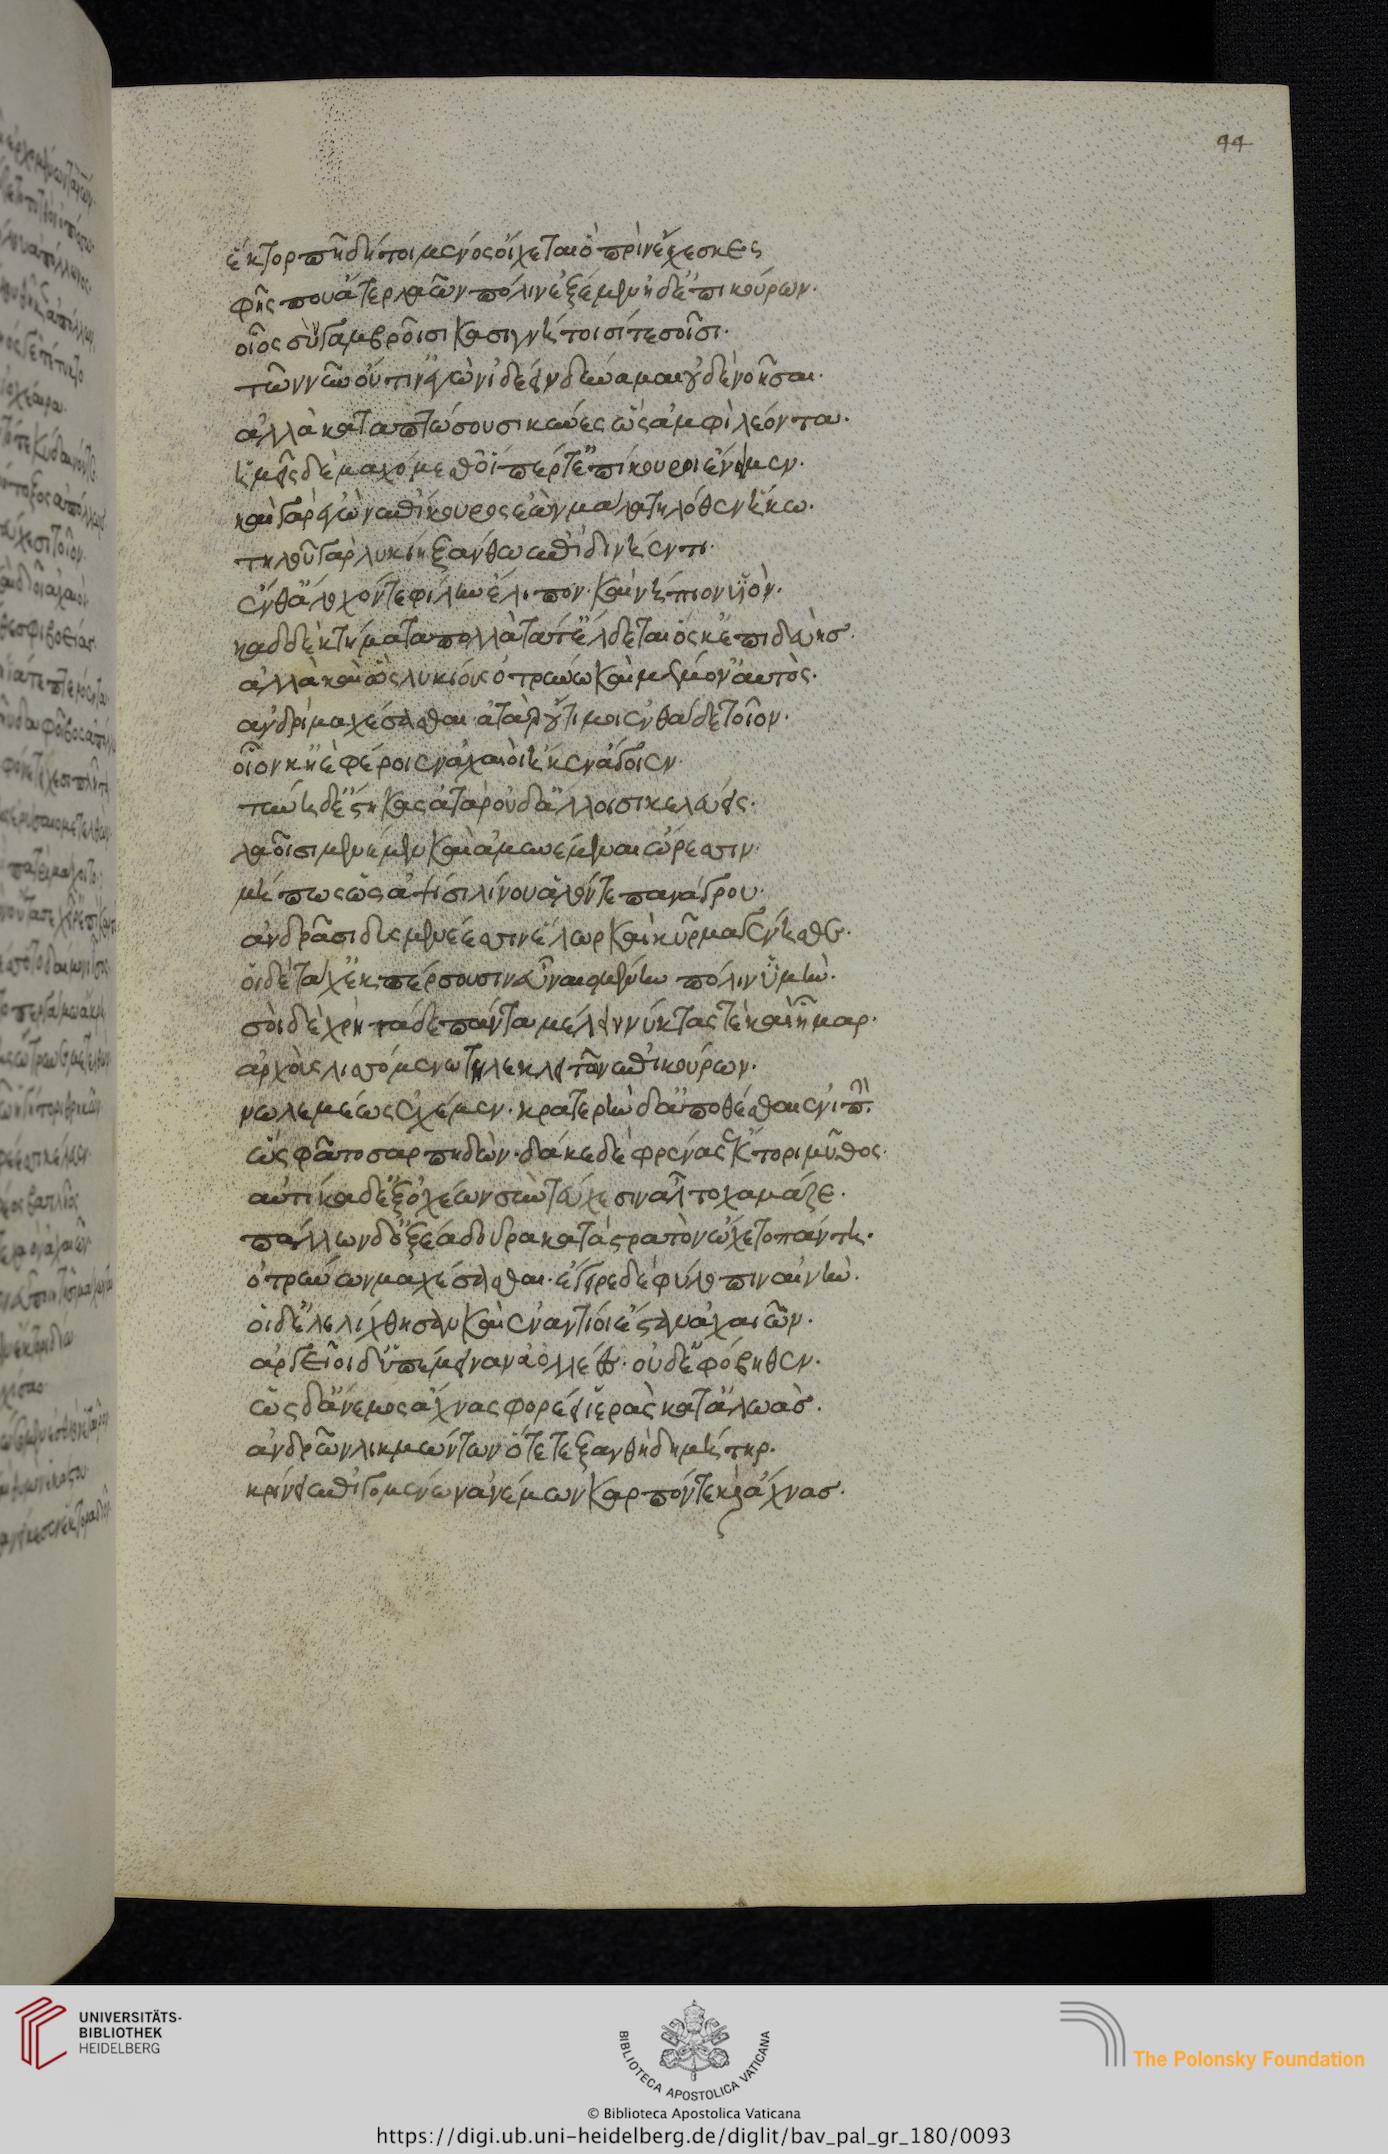 44
ἕκτορ πῆ δή τοι μένος οἴχεται ὃ πρὶν ἔχεσκες
φῆς που ἄτερ λαῶν πόλιν ἑξέμεν ἠδ' ἐπικούρων.
οἶος σὺν γαμβροῖσι κασιγνήτοισί τε σοῖσι.
τῶν νῦν οὔτιν' ἐγὼν ἰδέειν δύναμαι οὐδὲ νοῆσαι.
ἀλλὰ καταπτώσουσι κύνες ὣς ἀμφὶ λέοντα.
ἡμεῖς δὲ μαχόμεσθ' οἵπέρ τ' ἐπίκουροι ἔνειμεν.
καὶ γὰρ ἐγὼν ἐπίκουρος ἐὼν μάλα τηλόθεν ἥκω.
τηλοῦ γὰρ λυκίη ξάνθω ἐπὶ δινήεντι.
ἔνθ' ἄλοχόν τε φίλην ἔλιπον. καὶ νήπιον υἱόν.
καδδὲ κτήματα πολλὰ τά τ' ἔλδεται ὅς κ' ἐπιδευὴς.
ἀλλὰ καὶ ὣς λυκίους ὀτρύνω καὶ μέμον' αὐτὸς.
ἀνδρὶ μαχέσασθαι. ἀτὰρ οὔτι μοι ἐνθάδε τοῖον.
οἷόν κ' ἠὲ φέροιεν ἀχαιοὶ ἤ κεν ἄγοιεν.
τύνη δ' ἕστηκας ἀτὰρ οὐδ' ἄλλοισι κελεύεις.
λαοῖσι μενέμεν καὶ ἀμυνέμεναι ὤρεσσιν.
μή πως ὡς ἀψῖσι λίνου ἁλόντε πανάγρου.
ἀνδράσι δυσμενέεσσιν ἕλωρ καὶ κύρμα γένησθε.
οἱ δὲ τάχ' ἐκπέρσουσιν εὖ ναιομένην πόλιν ὑμήν.
σοὶ δὲ χρὴ τάδε πάντα μέλειν νύκτας τὲ καὶ ἦμαρ.
ἀρχοὺς λισσομένω τηλεκλειτῶν ἐπικούρων.
νωλεμέως ἐχέμεν. κρατερὴν δ' ἀποθέσθαι ἐνιπήν.
ὣς φάτο σαρπηδὼν. δάκε δὲ φρένας ἕκτορι μῦθος.
αὐτίκα δ' ἐξ ὀχέων σὺν τεύχεσιν ἆλτο χαμάζε.
πάλλων δ' ὀξέα δοῦρα κατὰ στρατὸν ᾤχετο πάντη.
ὀτρύνων μαχέσασθαι. ἔγειρε δὲ φύλοπιν αἰνήν.
οἱ δ' ἐλελίχθησαν καὶ ἐναντίοι ἔσταν ἀχαιῶν.
ἀργεῖοι δ' ὑπέμειναν ἀολλέες. οὐδ' ἐφόβηθεν.
ὡς δ' ἄνεμος ἄχνας φορέει ἱερὰς κατ' ἀλωὰς.
ἀνδρῶν λικμώντων ὅτε τε ξανθὴ δημήτηρ.
κρίνει ἐπειγομένων ἀνέμων καρπόν τε καὶ ἄχνας.
UNIVERSITÄTS-
BIBLIOTHEK
HEIDELBERG
BIBLIOTECA APOSTOLICA VATICANA
The Polonsky Foundation
© Biblioteca Apostolica Vaticana
https://digi.ub.uni-heidelberg.de/diglit/bav_pal_gr_180/0093